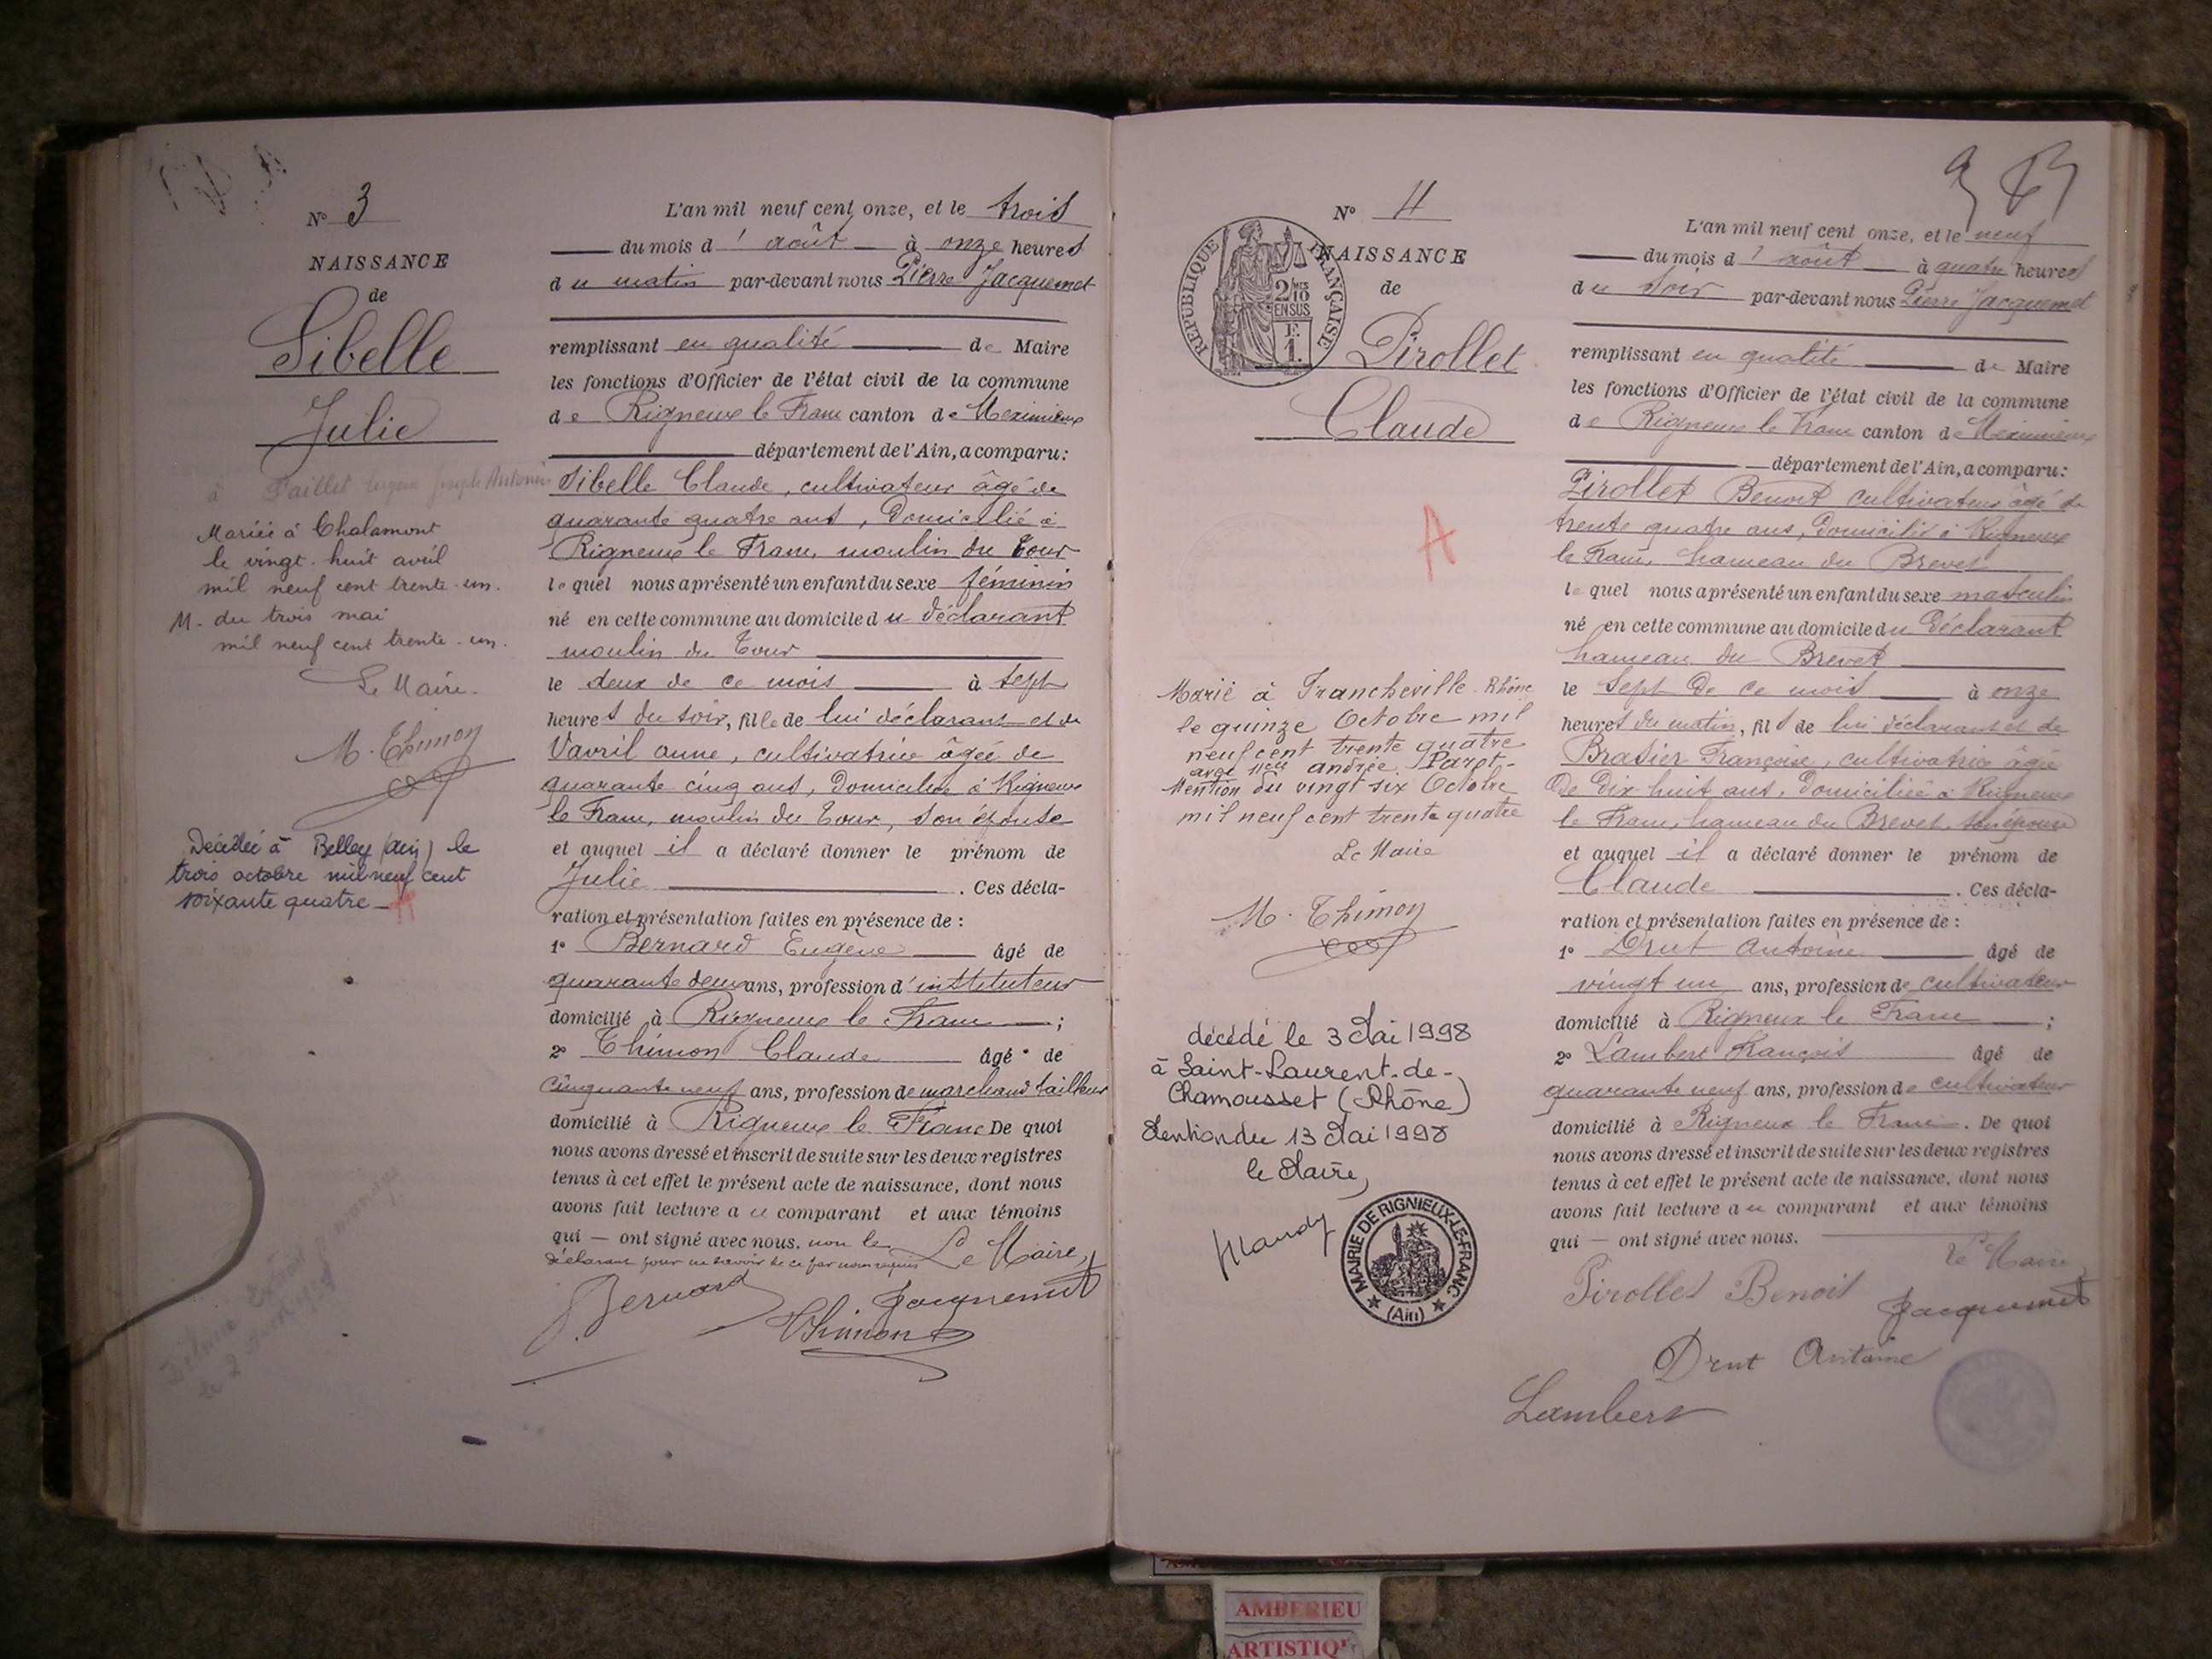 N° 3
NAISSANCE
de
Sibelle
Julie
à Paillet Joseph Antonin
Mariée à Chalamont
le vingt-huit avril
mil neuf cent trente-un.
M. du trois mai
mil neuf cent trente-un.
Le Maire.
M. Thimon
Décédée à Belley (Ain) le
trois octobre mil neuf cent
soixante quatre
L'an mil neuf cent onze, et le trois
du mois d'août à onze heures
du matin par-devant nous Pierre Jacquemet
remplissant en qualité de Maire
les fonctions d'Officier de l'état civil de la commune
de Rigneux le Franc canton de Meximieux
département de l'Ain, a comparu:
Sibelle Claude, cultivateur âgé de
quarante quatre ans, domicilié à
Rigneux le Franc, moulin du Tour
lequel nous a présenté un enfant du sexe féminin
né en cette commune au domicile du déclarant
moulin du Tour
le deux de ce mois à sept
heures du soir, fille de lui déclarant et de
Vavril Anne, cultivatrice âgée de
quarante cinq ans, domiciliée à Rigneux
le Franc, moulin du Tour, son épouse
et auquel il a déclaré donner le prénom de
Julie. Ces décla-
ration et présentation faites en présence de :
1° Bernard Eugène âgé de
quarante deux ans, profession d'instituteur
domicilié à Rigneux le Franc ;
2° Thimon Claude âgé de
cinquante neuf ans, profession de marchand tailleur
domicilié à Rigneux le Franc De quoi
nous avons dressé et inscrit de suite sur les deux registres
tenus à cet effet le présent acte de naissance, dont nous
avons fait lecture au comparant et aux témoins
qui — ont signé avec nous, non le
déclarant pour ne savoir de ce par nous requis Le Maire,
Bernard Jacquemet
Thimon
N° 4
NAISSANCE
de
RÉPUBLIQUE FRANÇAISE
2/10 EN SUS
Pirollet
Claude
A
Marié à Francheville Rhône
le quinze Octobre mil
neuf cent trente quatre
avec Melle Andrée Parot-
Mention du vingt six Octobre
mil neuf cent trente quatre
Le Maire
M. Thimon
décédé le 3 Mai 1998
à Saint-Laurent-de-
Chamousset (Rhône)
Mention du 13 Mai 1998
le Maire,
MAIRIE DE RIGNIEUX-LE-FRANC
(Ain)
L'an mil neuf cent onze, et le neuf
du mois d'août à quatre heures
du soir par-devant nous Pierre Jacquemet
remplissant en qualité de Maire
les fonctions d'Officier de l'état civil de la commune
de Rigneux le Franc canton de Meximieux
département de l'Ain, a comparu:
Pirollet Benoit cultivateur âgé de
trente quatre ans, domicilié à Rigneux
le Franc, hameau du Brevet
lequel nous a présenté un enfant du sexe masculin
né en cette commune au domicile du déclarant
hameau du Brevet
le sept de ce mois à onze
heures du matin, fils de lui déclarant et de
Brasier Françoise, cultivatrice âgée
de dix huit ans, domiciliée à Rigneux
le Franc, hameau du Brevet, son épouse
et auquel il a déclaré donner le prénom de
Claude. Ces décla-
ration et présentation faites en présence de :
1° Drut Antoine âgé de
vingt un ans, profession de cultivateur
domicilié à Rigneux le Franc ;
2° Lambert François âgé de
quarante neuf ans, profession de cultivateur
domicilié à Rigneux le Franc. De quoi
nous avons dressé et inscrit de suite sur les deux registres
tenus à cet effet le présent acte de naissance, dont nous
avons fait lecture au comparant et aux témoins
qui — ont signé avec nous.
Le Maire
Pirollet Benoit Jacquemet
Drut Antoine
Lambert
AMBERIEU
ARTISTIQ